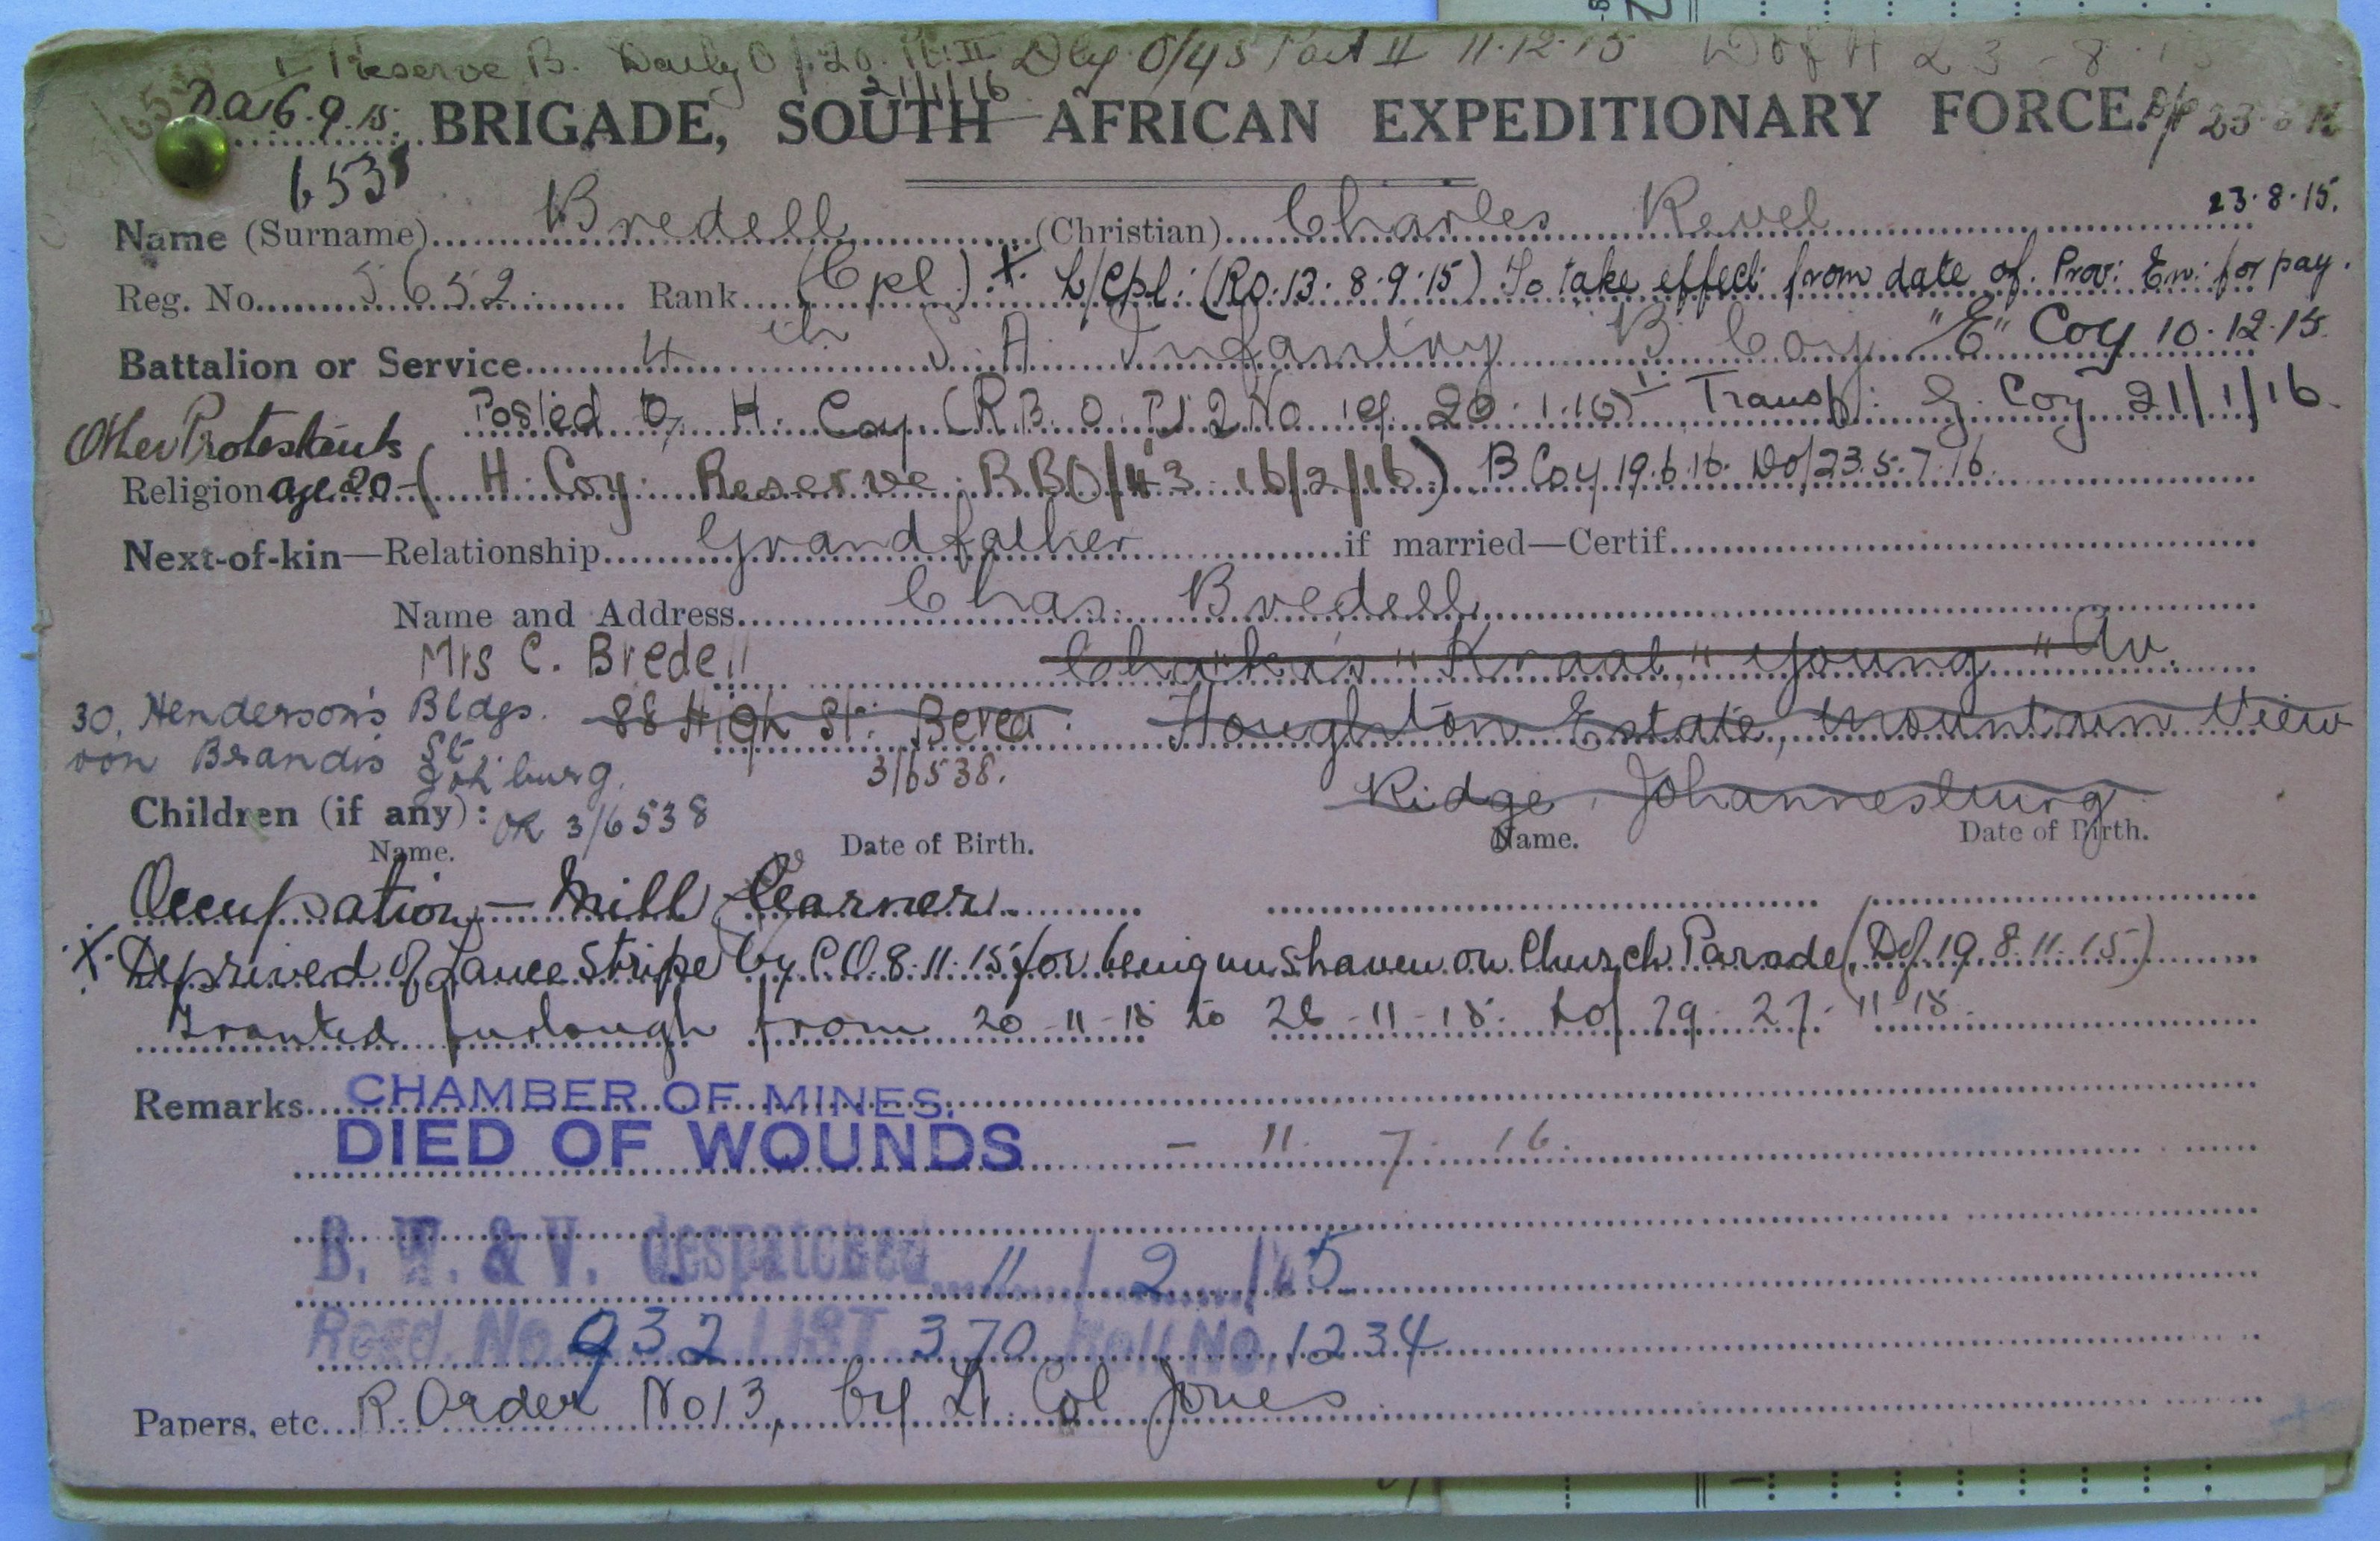 1st Reserve B. Daily O/20. Pt. II Dly O/45 Part II 11.12.15 D of A 23-8-15
21/1/16
D.a 6.9.15. BRIGADE, SOUTH AFRICAN EXPEDITIONARY FORCE. 23.8.15
6538
Name (Surname) Bredell (Christian) Charles Revel 23.8.15.
Reg. No. 5652 Rank (Cpl) X. L/Cpl: (Ro.13. 8.9.15) To take effect from date of Prov: En: for pay.
Battalion or Service 4th S. A. Infantry B Coy "E" Coy 10.12.15.
Other Protestants Posted to H. Coy (R.B.O. Pt 2 No 19 of 20.1.16) Transf: G. Coy 21/1/16.
Religion age 20 (H. Coy. Reserve. RBO/43 16/2/16) B Coy 19.6.16. Do/23.5.7.16.
Next-of-kin—Relationship Grandfather if married—Certif.
Name and Address Chas. Bredell
Mrs C. Bredell "Kraal," "Young" Av.
30, Henderson's Bldgs. 88 High St: Berea. Houghton Estate, Mountain View
von Brandis St
Joh'burg. 3/6538. Ridge, Johannesburg
Children (if any): OR 3/6538
Name. Date of Birth. Name. Date of Birth.
Occupation — Mill Learner.
X. Deprived of Lance Stripe by C.O. 8.11.15 for being unshaven on Church Parade (Do/19. 8.11.15)
Granted furlough from 20-11-15 to 26-11-15. Do/ 29. 27.-11-15.
Remarks CHAMBER OF MINES.
DIED OF WOUNDS - 11. 7. 16.
B. W. & V. despatched 11/2/25
Regd. No. 932 LIST 370 Roll No. 1234
Papers, etc. R. Order No 13, by Lt. Col Jones